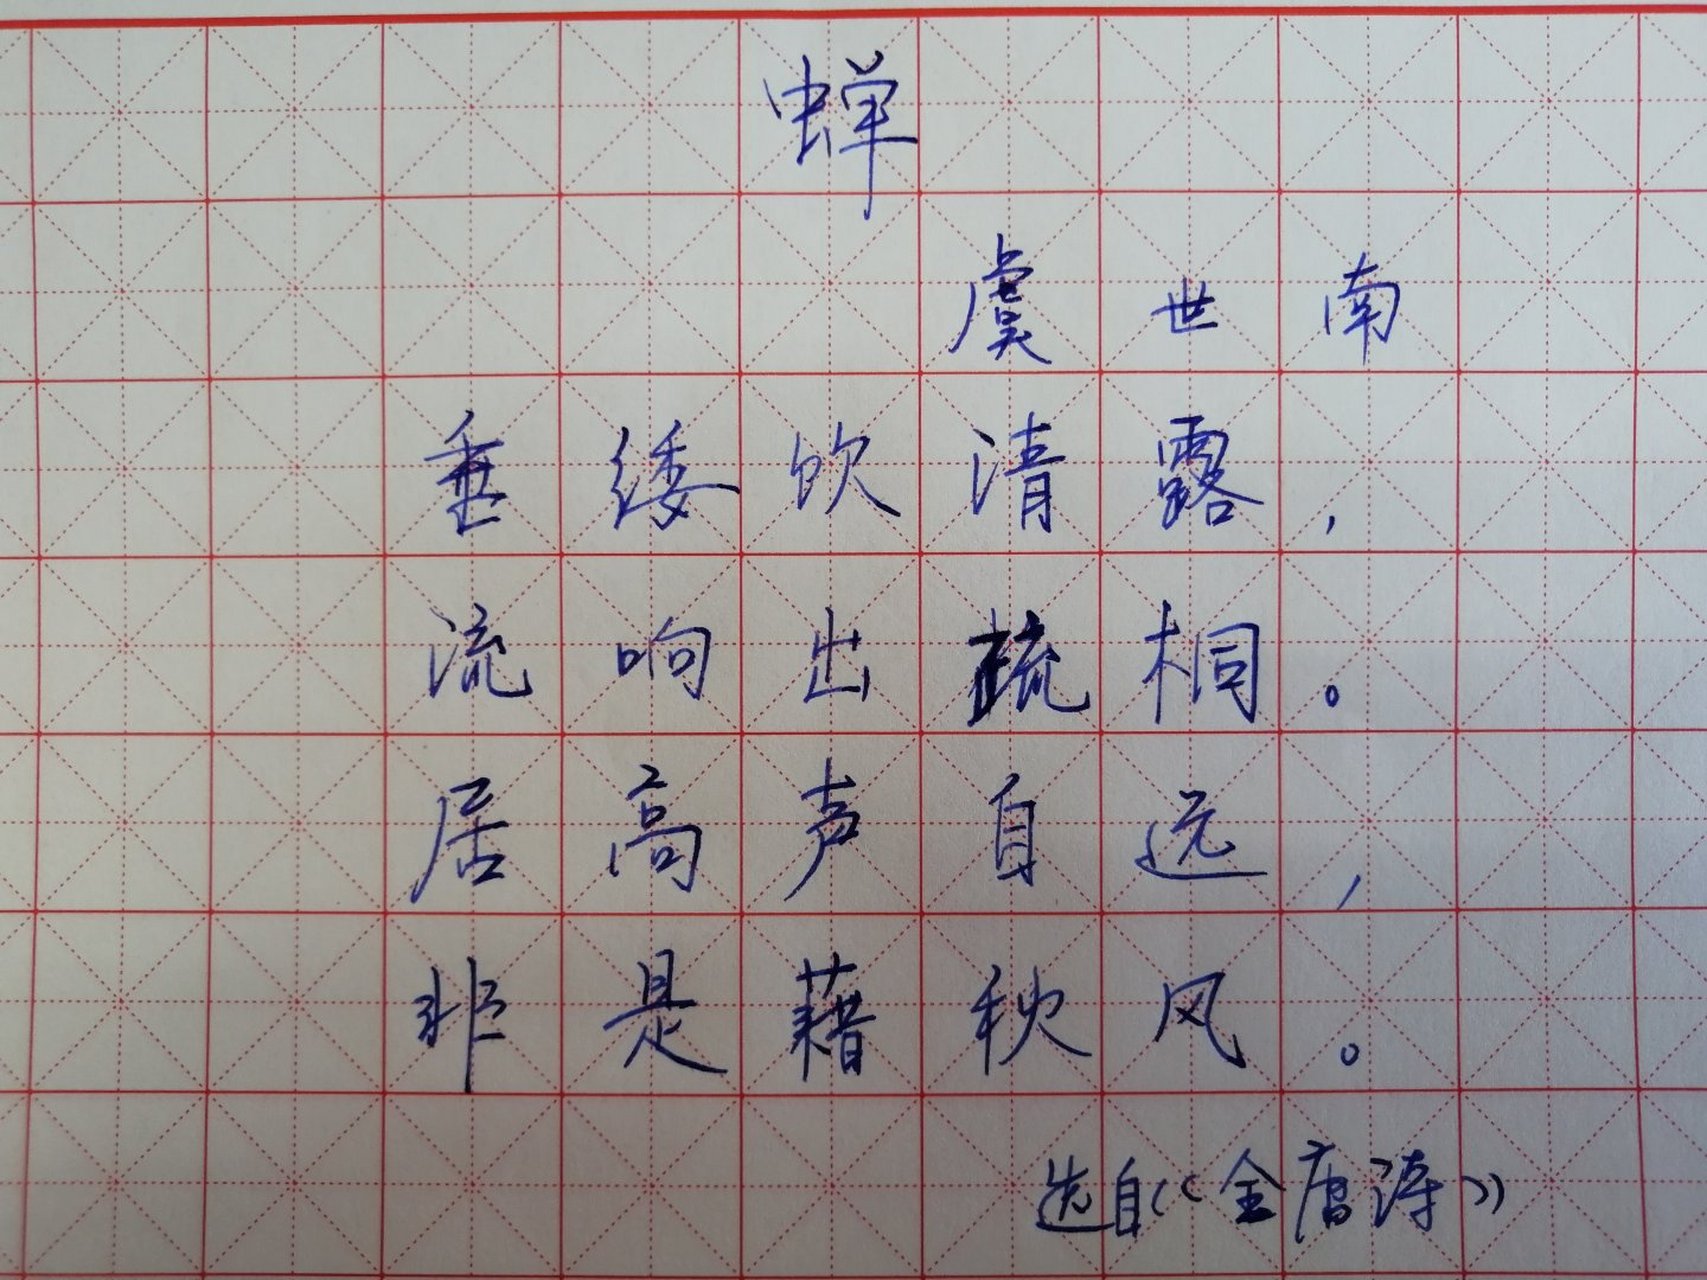 蝉
虞世南
垂緌饮清露,
流响出疏桐。
居高声自远,
非是藉秋风。
选自《全唐诗》